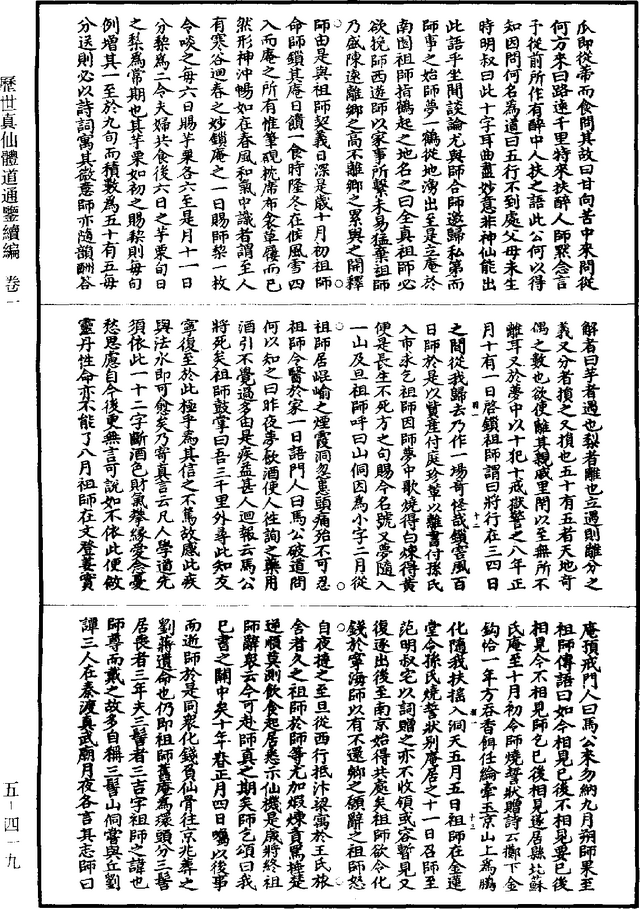 瓜即從蒂而食問其故曰甘向苦中來問從
何方來曰路遠千里特來扶醉人師默念言
予從前所作有醉中人扶之語此公何以得
知因問何名為道曰五行不到處父母未生
時明叔曰此十字耳曲盡妙意非神仙能出
此語乎坐間談論尤與師合師邀歸私第而
師事之始師夢一鶴從地湧出至是立庵於
南園祖師指鶴起之地名之曰全真祖師必
欲挽師西遊師以家事所繫未易猛棄祖師
乃盛陳遠離鄉之高不離鄉之累與之開釋
師由是與祖師契義日深是歲十月初祖師
命師鎖其庵日饋一食時隆冬在候風雪四
入而庵之所有惟筆硯枕席布衾草屨而已
然形神沖暢如在春風和氣中識者謂至人
有寒谷迴春之妙鎖庵之一日賜師梨一枚
令啖之每六日賜芋栗各六至是月十一日
分梨為二令夫婦共食後六日之芋栗旬日
之梨為常期也其芋栗如初之賜梨則每旬
例增其一至於九旬而積數為五十有五每
分送則必以詩詞寓其微意師亦隨韻酬答
解者曰芋者遇也梨者離也立遇則離分之
義又分者損之又損也五十有五者天地奇
偶之數也欲使離其親戚里閈以至無所不
離耳又於夢中以十犯十戒獄警之八年正
月十有一日啓鎖祖師謂曰將行在三四日
之間從我歸去乃作一場奇怪哉鎖害風百
日師於是以貲產付庭珍輩以離書付孫氏
入市永乞祖師因師夢中歌燒得白煉得黃
便是長生不死方之句賜今名號又夢隨入
一山及旦祖師呼曰山侗因為小字二月從
祖師居崐嵛之煙霞洞忽患頭痛殆不可忍
祖師令醫於家一日語門人曰馬公破道問
何以知之曰昨夜夢飲酒使人往詢之藥用
酒引不覺過多由是疾益甚人迴報云馬公
將死矣祖師鼓掌曰吾三千里外尋此知友
寧復至於此極乎為其信之不篤故處此疾
與法水即可愈矣乃寄真言云凡人學道先
須依此一十二字斷酒色財氣攀緣愛念憂
愁思慮自今後更無言可說如不依此便做
靈丹性命亦不能了八月祖師在文登薑實
庵預戒門人曰馬公來勿納九月朔師果至
祖師傳語曰如今相見已後不相見要已後
相見今不相見師乞已後相見遂居縣北蘇
氏庵至十月初令師燒誓狀贈詩云擲下金
鈎恰一年方吞香餌任綸牽玉京山上為鵬
化隨我扶搖入洞天五月五日祖師在金蓮
堂令孫氏燒誓狀別庵居之十一日召師至
范明叔宅以詞贈之亦不收領或容暫見又
復逐出後至南京始得共處矣祖師欲令化
錢於寧海師以有不還鄉之願辭之祖師怒
自夜撻之至旦從西行抵汴梁寓於王氏旅
舍者久之祖師於師等尤加煅煉責罵捶楚
逆順莫測飲食起居悉示仙機是歲將終祖
師辭衆云今可赴師真之期矣師乞頌曰我
已書之關中矣十年春正月四日囑以後事
而逝師於是同衆化錢負仙骨往京兆葬之
劉蔣遺命也仍即祖師舊庵為環頭分三髻
居喪者三年夫三髻者三吉字祖師之諱也
師尊而戴之故多自稱三髻山侗嘗與丘劉
譚三人在秦渡真武廟月夜各言其志師曰
歷世真仙體道通鑑續編 卷一
五-四一九